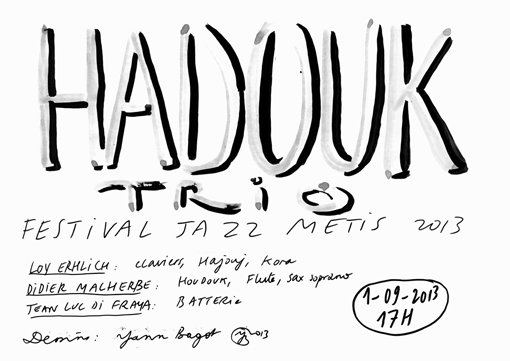 HADOUK
TRiO
FESTiVAL JAZZ METIS 2013
LOY ERHLICH : claviers, Hajouj, Kora
DIDIER MALHERBE : HOUDOUK, Flute, Sax soprano
JEAN LUC DI FRAYA : BATTERie
1-09-2013
17H
Dessins : Yann Bagot 2013